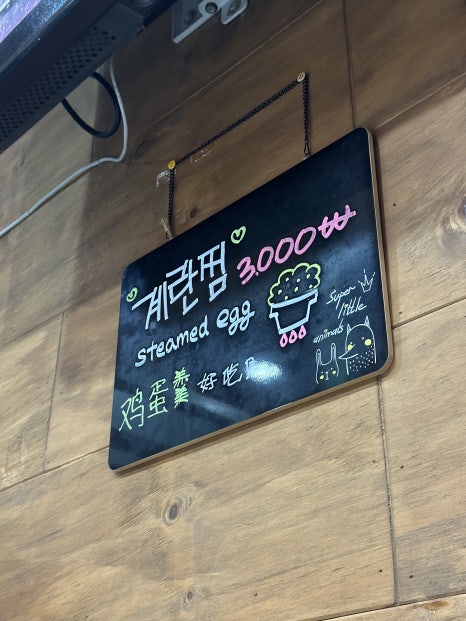 계란찜 3,000₩
steamed egg
鸡蛋羹 好吃
super little
animals